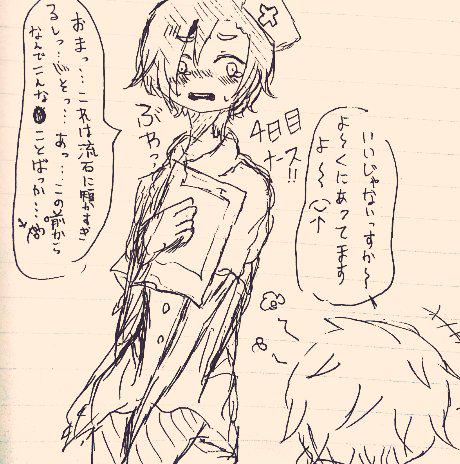 いいじゃないっすか〜
よ〜くにあってます
よ〜
4日目
ナース!!
おまっ…これは流石に短かすぎ
るしっ…そっ…あっ…この前から
なんでこんなことばっか…